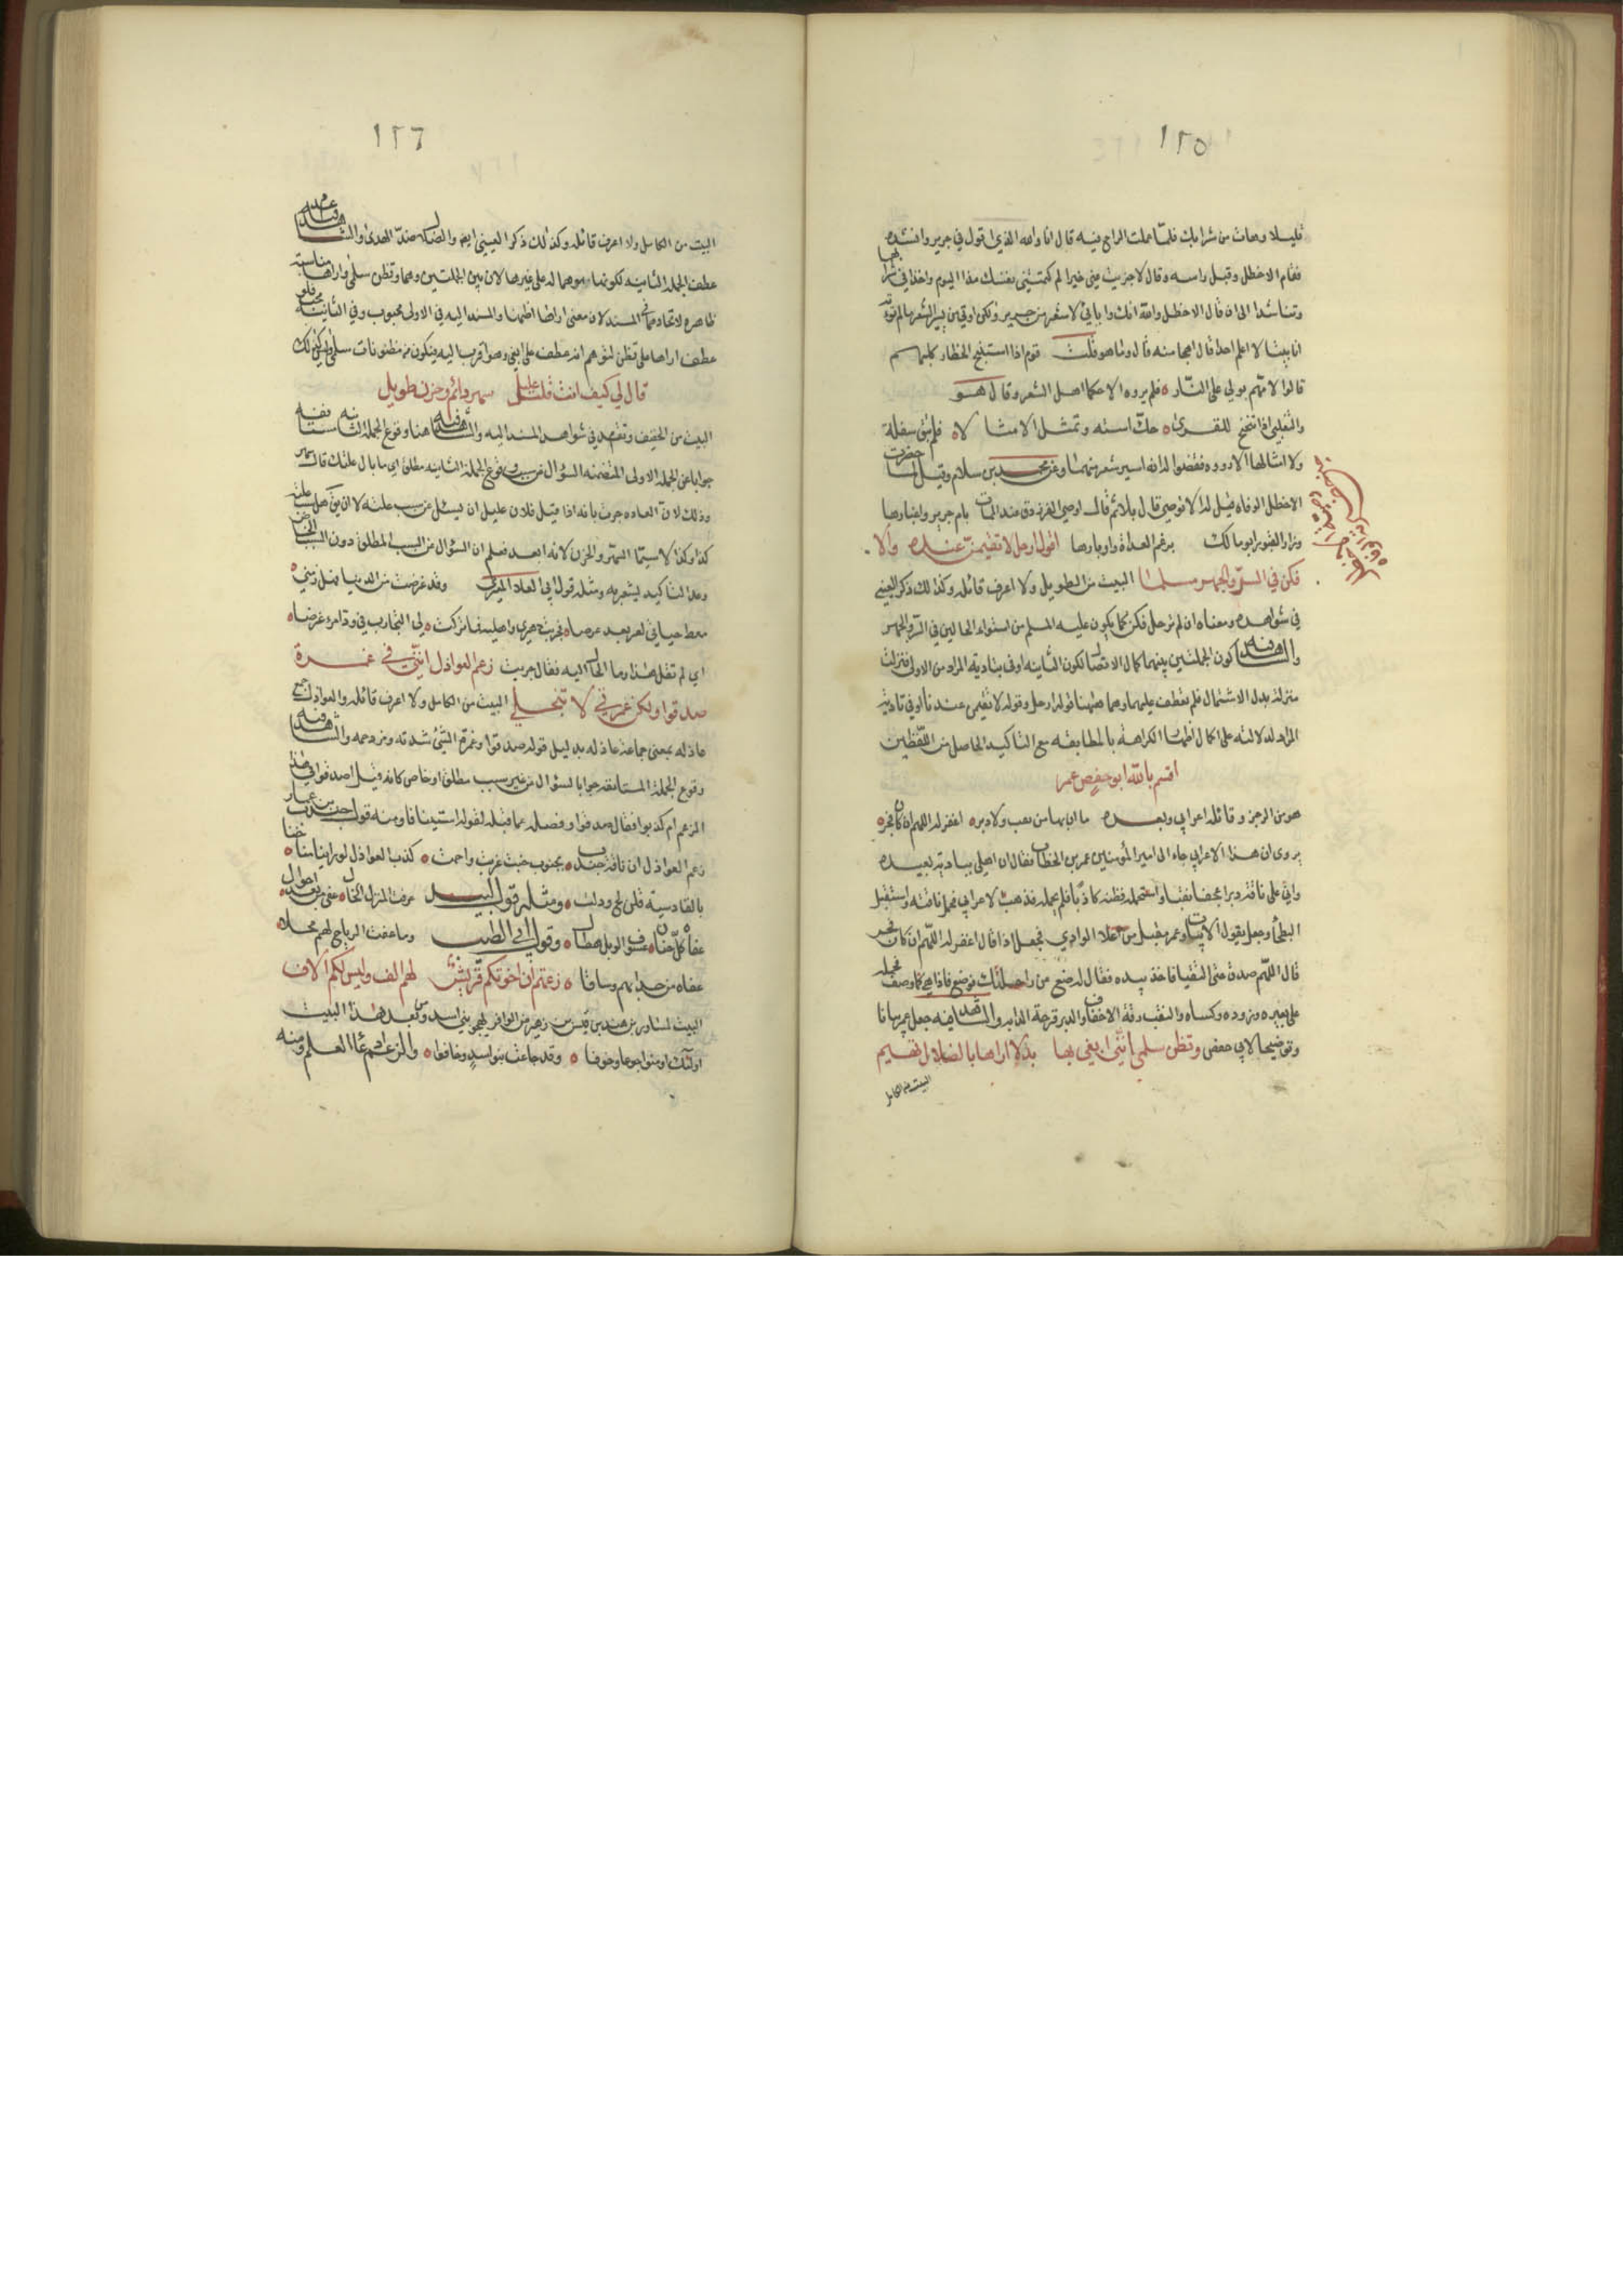 ١٢٥
قليلا وهات من شرابك فلما عملت الراح فيه قال انا والله الذي اقول في جرير وانشده
فقام الاخطل وقبل راسه وقال لا جزيت عني خيرا لم كتمتني نفسك هذا اليوم واخذا في شرابهما
وتناشدا الى ان قال الاخطل والله انك واياي لاشعر من جرير ولكن اوتي من سير الشعر ما لم نوته
انا بيتا لا اعلم احدا قال اهجا منه قال وما هو قلت قوم اذا استنبح الخطار كلبهم
قالوا لامهم بولي على النار فلم يروه الا حكما اهل الشعر وقال هو
والتغلبي اذا تنحنح للقرى حك استه وتمثل الامثالا فلم تبق سفلة
ولا امثالها الا رووه فقضوا له انه اسير شعر منهما وعن محمد بن سلام وقيل لما حضرت
الاخطل الوفاة قيل له الا توصي قال بلا ثم قال اوصي الفرزدق عند الممات بام جرير واعيارها
وزار القبور ابو مالك برغم العداة واوتارها اقول له ارحل لا تقيمن عندنا والا
فكن في السر والجهر مسلما البيت من الطويل ولا اعرف قائله وكذلك ذكر العيني
في شواهده ومعناه ان لم ترحل فكن كما يكون عليه المسلم من استواء الحالين في السر والجهر
والشاهد فيه كون الجملتين بينهما كمال الاتصال لكون الثانية اوفى بتادية المراد من الاولى فنزلت
منزلة بدل الاشتمال فلم تعطف عليها وهما هنا قوله ارحل وقوله لا تقيمن عندنا اوفي تادية
المراد لدلالته على كمال اظهار الكراهة بالمطابقة مع التاكيد الحاصل من اللفظين
اقسم بالله ابو حفص عمر
هو من الرجز وقائله اعرابي وبعده ما ان بها من نقب ولا دبره اغفر له اللهم ان كان فجر
يروى ان هذا الاعرابي جاء الى امير المؤمنين عمر بن الخطاب فقال ان اهلي ببادية بعيده
واني على ناقة دبرا عجفا نقبا واستحمله فظنه كاذبا فلم يحمله فذهب الاعرابي فحمل ناقته واستقبل
البطحا وجعل يقول الابيات وعمر مقبل من اعلا الوادي فجعل اذا قال اغفر له اللهم ان كان فجر
قال اللهم صدق حتى التقيا فاخذ بيده فقال له ضع عن راحلتك فوضع فاذا هي كما وصف فحمله
على بعيره وزوده وكساه والنقب رقة الاخفاف والدبر قرحة الدابه والشاهد فيه جعل عمر بيانا
وتوضيحا لابي حفص وتظن سلمى انني ابغي بها بدلا اراها بالضلال تهيم
البيت من الكامل
١٢٦
البيت من الكامل ولا اعرف قائله وكذلك ذكر العيني ايضا والضلال ضد الهدى والشاهد فيه عدم
عطف الجملة الثانية لكونها موهما له على غيرها لان بين الجملتين وهما وتظن سلمى واراها مناسبة
ظاهره لاتحادهما في المسند لان معنى اراها اظنها والمسند اليه في الاولى محبوب وفي الثانية محب فلو
عطف اراها على تظن لتوهم انه عطف على ابغي وهو اقرب اليه فيكون من مظنونات سلمى وليس كذلك
قال لي كيف انت قلت عليل سهر دائم وحزن طويل
البيت من الخفيف وتقدم في شواهد المسند اليه والشاهد فيه هنا وقوع الجملة الثانية مستانفه
جوابا عن الجملة الاولى المتضمنه السؤال عن سبب وقوع الجملة الثانيه مطلق اي ما بال علتك قال سهر
وذلك لان العاده جرت بانه اذا قيل فلان عليل ان يسئل عن سبب علته لا ان يقال هل سبب علته
كذا وكذا لا سيما السهر والحزن لانه ابعد فعلم ان السؤال عن السبب المطلق دون السبب الخاص
وعدم التاكيد يشعر به ومثله قول ابي العلاء المعري وقد غرضت من الدنيا فهل زمني
معط حياتي لغر بعد غرضا جربت دهري واهليه فما تركت لي التجارب في ود امرء غرضا
اي لم تقل هذا وما الحال اليه فقال جربت زعم العواذل انني في غمرة
صدقوا ولكن غمرتي لا تنجلي البيت من الكامل ولا اعرف قائله والعواذل جمع
عاذله بمعنى جماعة عاذله بدليل قوله صدقوا وغمرة الشئ شدته ومزدحمه والشاهد فيه
وقوع الجملة المستانفه جوابا لسؤال عن غير سبب مطلق او خاص كانه قيل اصدقوا في هذا
الزعم ام كذبوا فقال صدقوا وفصله عما قبله لقوله استينافا ومنه قول جندب بن عمار
زعم العواذل ان ناقة جندب بجنوب خبت عريت واجمت كذب العواذل لو راين مناخنا
بالقادسية قلن لج وذلت ومثله قول لبيد عرفت المنزل الخالي عفى من بعد احوال
عفاه كل حنان عسوف الوبل هطال وقول ابي الطيب وما عفت الرياح لهم محلا
عفاه من حدا بهم وساقا زعمتم ان اخوتكم قريش لهم الف وليس لكم الاف
البيت لمساور بن هند بن قيس بن زهير من الوافر يهجو بني اسد وبعد هذا البيت
اولئك اومنوا جوعا وخوفا وقد جاعت بنو اسد وخافوا والزعم ادعاء العلم ومنه